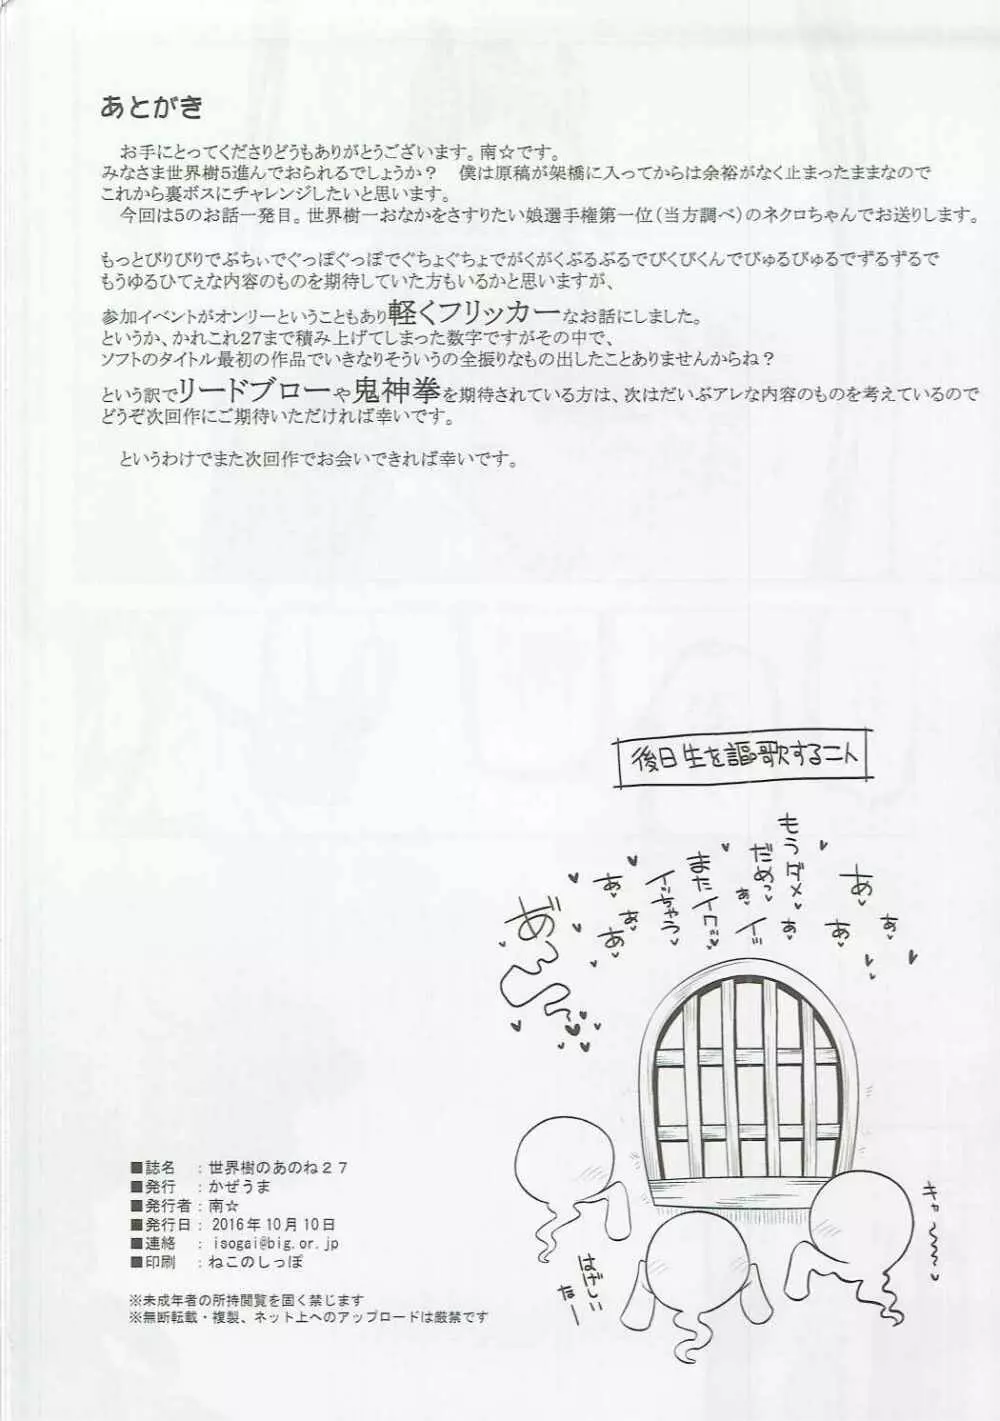 あとがき
お手にとってくださりどうもありがとうございます。南☆です。
みなさま世界樹5進んでおられるでしょうか？　僕は原稿が架橋に入ってからは余裕がなく止まったままなので
これから裏ボスにチャレンジしたいと思います。
今回は5のお話一発目。世界樹一おなかをさすりたい娘選手権第一位（当方調べ）のネクロちゃんでお送りします。
もっとびりびりでぶちぃでぐっぽぐっぽでぐちょぐちょでがくがくぶるぶるでびくびくんでびゅるびゅるでずるずるで
もうゆるひてぇな内容のものを期待していた方もいるかと思いますが、
参加イベントがオンリーということもあり軽くフリッカーなお話にしました。
というか、かれこれ27まで積み上げてしまった数字ですがその中で、
ソフトのタイトル最初の作品でいきなりそういうの全振りなもの出したことありませんからね？
という訳でリードブローや鬼神拳を期待されている方は、次はだいぶアレな内容のものを考えているので
どうぞ次回作にご期待いただければ幸いです。
というわけでまた次回作でお会いできれば幸いです。
後日生を謳歌する二人
あ♥
ぁ♥
あ♥
もうダメ♥
ぁ♥
だめっ♥
ぁ♥
イッ
またイクッ♥
イッちゃう♥
ぁ♥
ぁ♥
あ♥
あ゛〜っ♥
キャ〜〜♥
はげしい
なー
■誌名　：世界樹のあのね２７
■発行　：かぜうま
■発行者：南☆
■発行日：2016年10月10日
■連絡　：isogai@big.or.jp
■印刷　：ねこのしっぽ
※未成年者の所持閲覧を固く禁じます
※無断転載・複製、ネット上へのアップロードは厳禁です